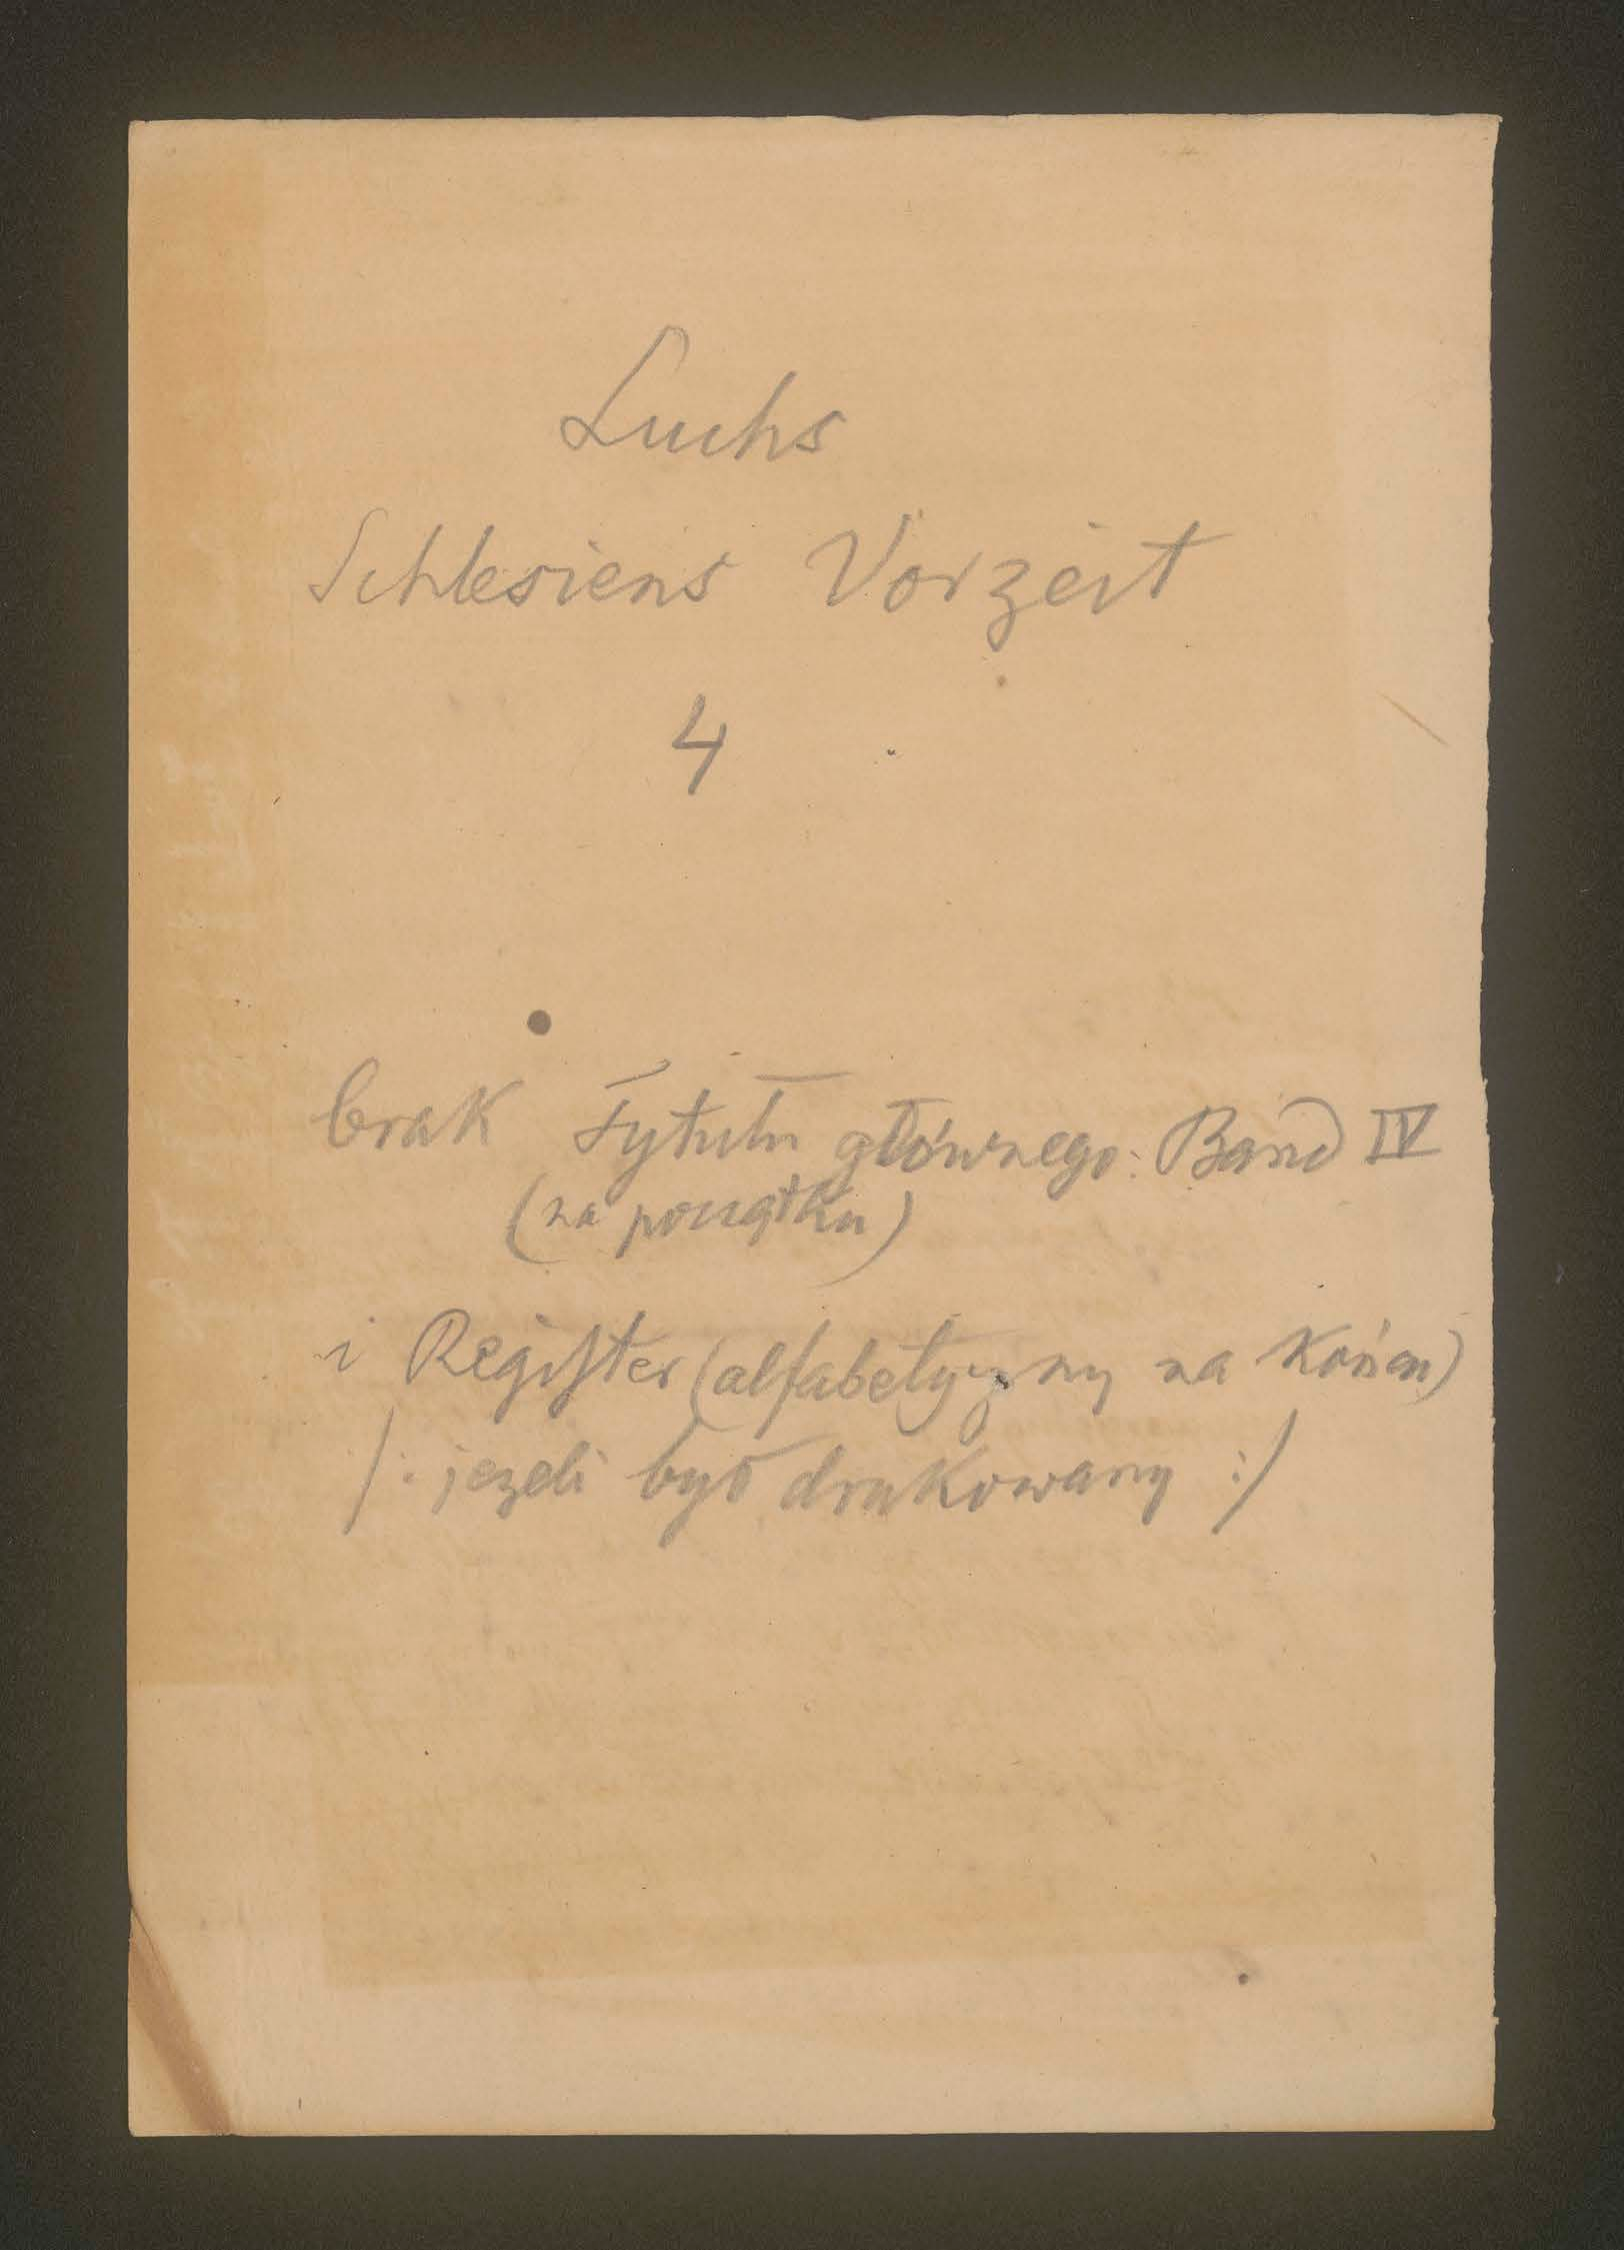 Luchs
Schlesiens Vorzeit
4
brak Tytułu głównego: Band IV
(na początku)
i Register (alfabetyczny na końcu)
/: jezeli był drukowany :/